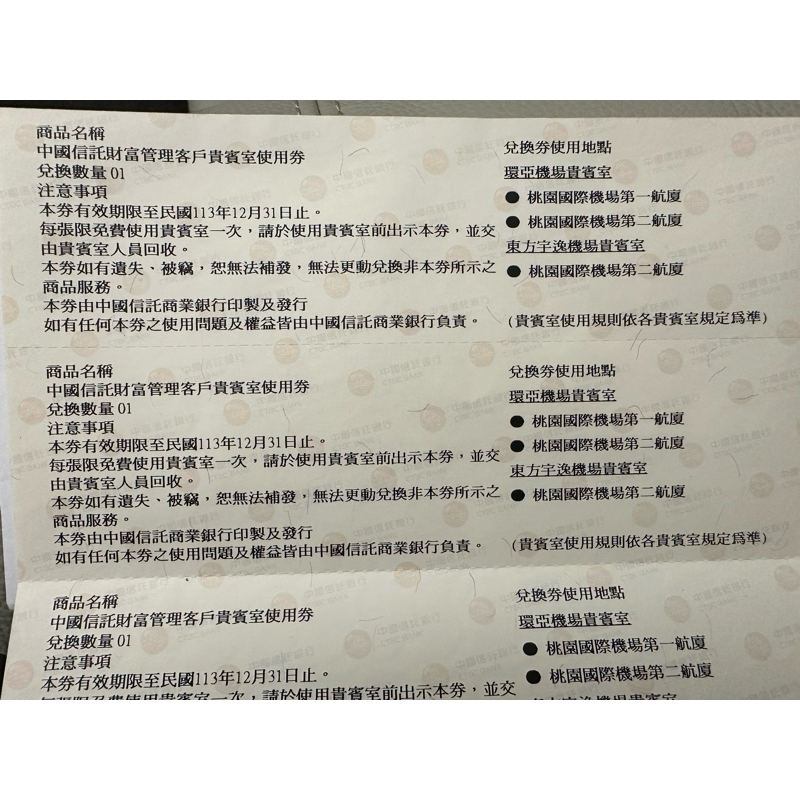 商品名稱
中國信託財富管理客戶貴賓室使用券
兌換數量 01
注意事項
本券有效期限至民國113年12月31日止。
每張限免費使用貴賓室一次，請於使用貴賓室前出示本券，並交
由貴賓室人員回收。
本券如有遺失、被竊，恕無法補發，無法更動兌換非本券所示之
商品服務。
本券由中國信託商業銀行印製及發行
如有任何本券之使用問題及權益皆由中國信託商業銀行負責。
兌換券使用地點
環亞機場貴賓室
● 桃園國際機場第一航廈
● 桃園國際機場第二航廈
東方宇逸機場貴賓室
● 桃園國際機場第二航廈
(貴賓室使用規則依各貴賓室規定為準)
商品名稱
中國信託財富管理客戶貴賓室使用券
兌換數量 01
注意事項
本券有效期限至民國113年12月31日止。
每張限免費使用貴賓室一次，請於使用貴賓室前出示本券，並交
由貴賓室人員回收。
本券如有遺失、被竊，恕無法補發，無法更動兌換非本券所示之
商品服務。
本券由中國信託商業銀行印製及發行
如有任何本券之使用問題及權益皆由中國信託商業銀行負責。
兌換券使用地點
環亞機場貴賓室
● 桃園國際機場第一航廈
● 桃園國際機場第二航廈
東方宇逸機場貴賓室
● 桃園國際機場第二航廈
(貴賓室使用規則依各貴賓室規定為準)
商品名稱
中國信託財富管理客戶貴賓室使用券
兌換數量 01
注意事項
本券有效期限至民國113年12月31日止。
每張限免費使用貴賓室一次，請於使用貴賓室前出示本券，並交
兌換券使用地點
環亞機場貴賓室
● 桃園國際機場第一航廈
● 桃園國際機場第二航廈